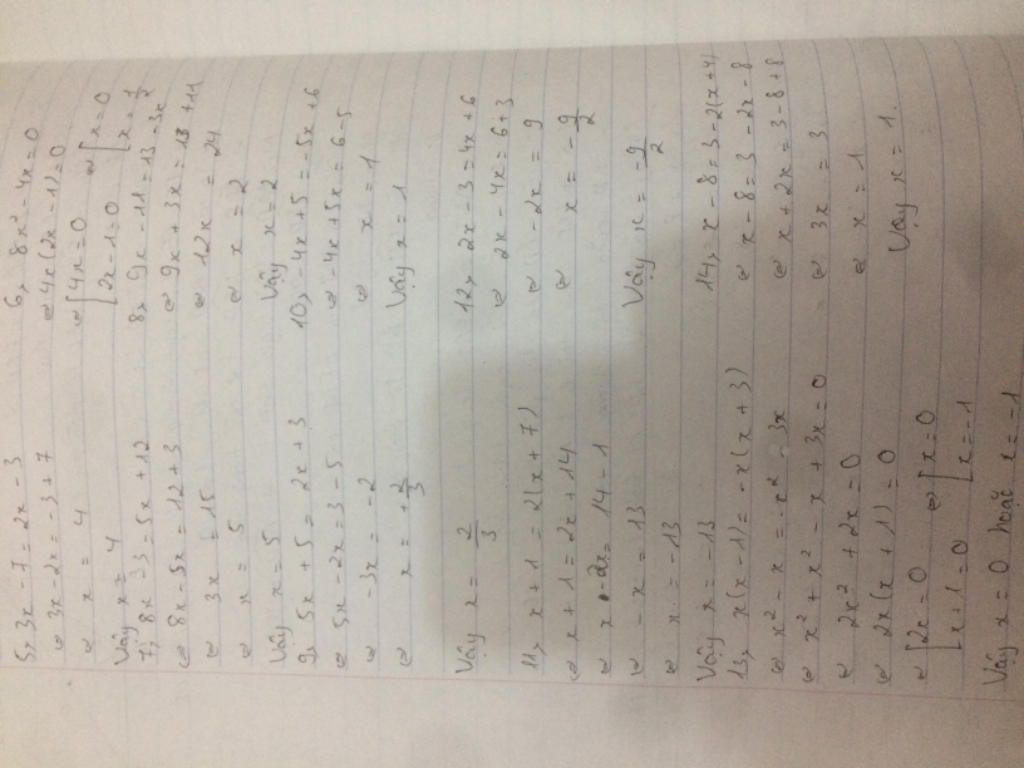 5, 3x - 7 = 2x - 3
⇔ 3x - 2x = -3 + 7
⇔ x = 4
Vậy x = 4
7, 8x - 3 = 5x + 12
⇔ 8x - 5x = 12 + 3
⇔ 3x = 15
⇔ x = 5
Vậy x = 5
9, 5x + 5 = 2x + 3
⇔ 5x - 2x = 3 - 5
⇔ -3x = -2
⇔ x = + 2/3
Vậy x = 2/3
11, x + 1 = 2(x + 7)
⇔ x + 1 = 2x + 14
⇔ x - 2x = 14 - 1
⇔ - x = 13
⇔ x = -13
Vậy x = -13
13, x(x - 1) = - x(x + 3)
⇔ x² - x = - x² - 3x
⇔ x² + x² - x + 3x = 0
⇔ 2x² + 2x = 0
⇔ 2x(x + 1) = 0
⇔ [2x = 0 ⇔ [x = 0
[x + 1 = 0 [x = -1
Vậy x = 0 hoặc x = -1
6, 8x² - 4x = 0
⇔ 4x(2x - 1) = 0
⇔ [4x = 0 ⇔ [x = 0
[2x - 1 = 0 [x = 1/2
8, 9x - 11 = 13 - 3x
⇔ 9x + 3x = 13 + 11
⇔ 12x = 24
⇔ x = 2
Vậy x = 2
10, -4x + 5 = -5x + 6
⇔ -4x + 5x = 6 - 5
⇔ x = 1
Vậy x = 1
12, 2x - 3 = 4x + 6
⇔ 2x - 4x = 6 + 3
⇔ -2x = 9
⇔ x = - 9/2
Vậy x = - 9/2
14, x - 8 = 3 - 2(x + 4)
⇔ x - 8 = 3 - 2x - 8
⇔ x + 2x = 3 - 8 + 8
⇔ 3x = 3
⇔ x = 1
Vậy x = 1.